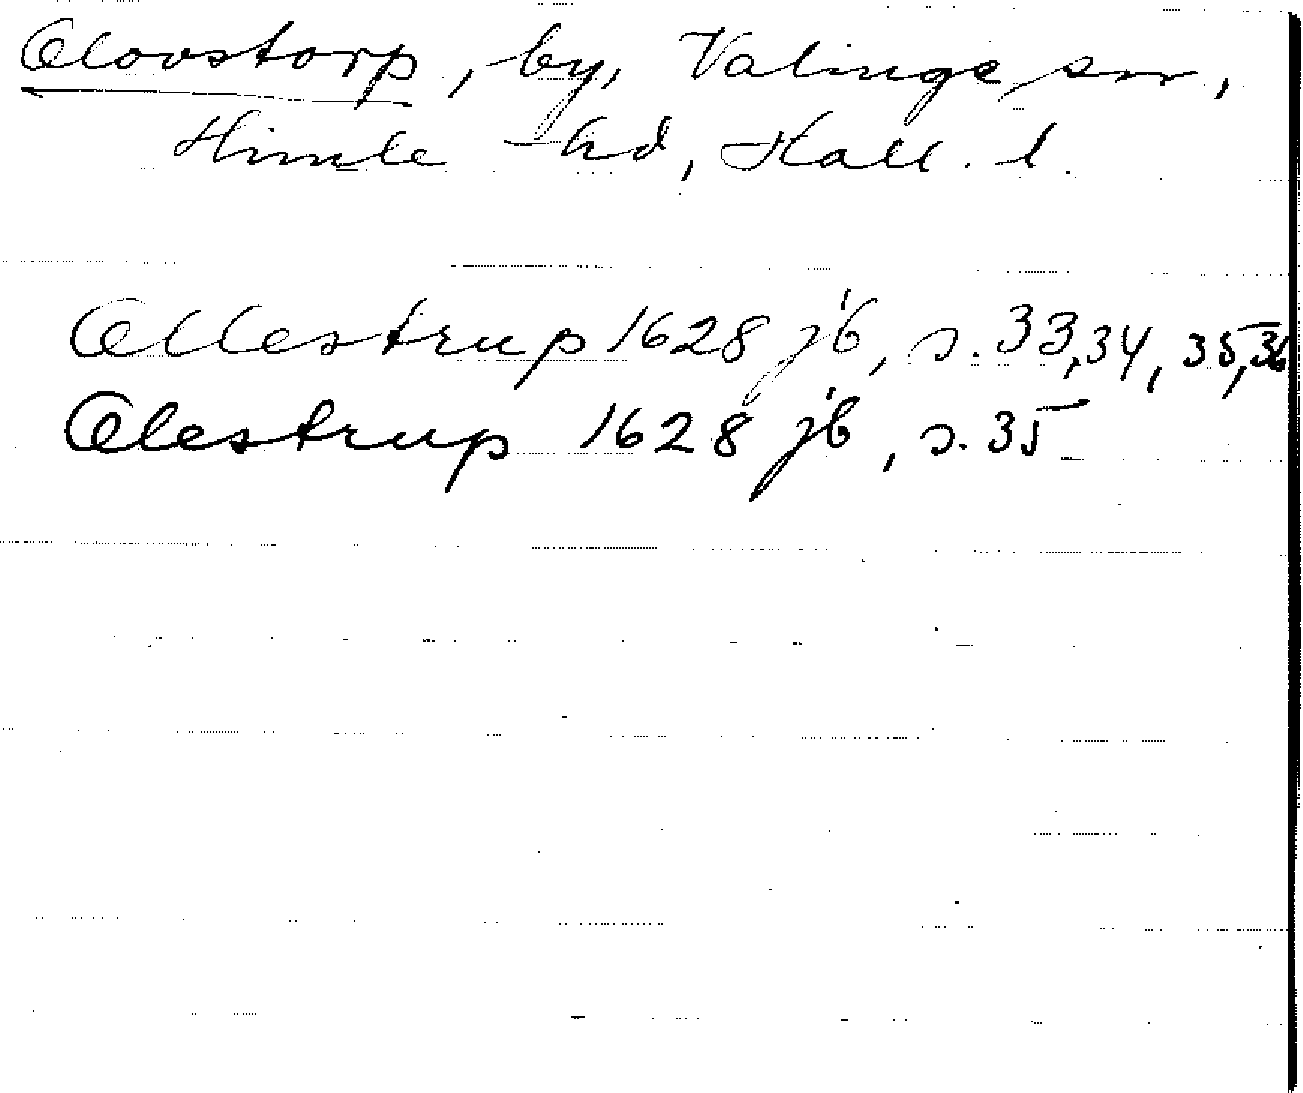 Olovstorp, by, Valinge sn,
Himle hd, Hall. l.
Ollestrup 1628 jb, s. 33, 34, 35, 36
Olestrup 1628 jb, s. 35